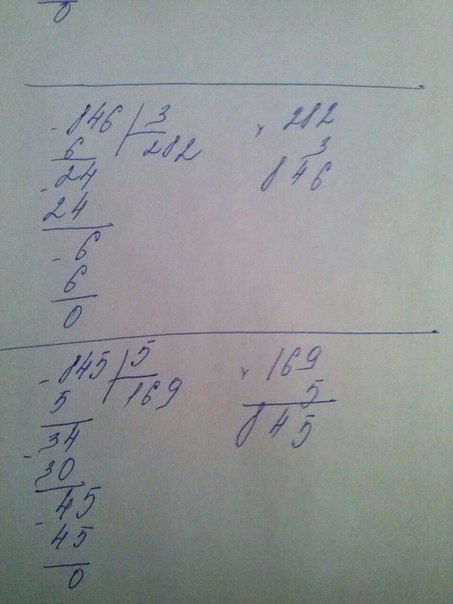 0
- 846 | 3 × 282
6 282 3
- 24 846
24
- 6
6
0
- 845 | 5 × 169
5 169 5
- 34 845
30
- 45
45
0